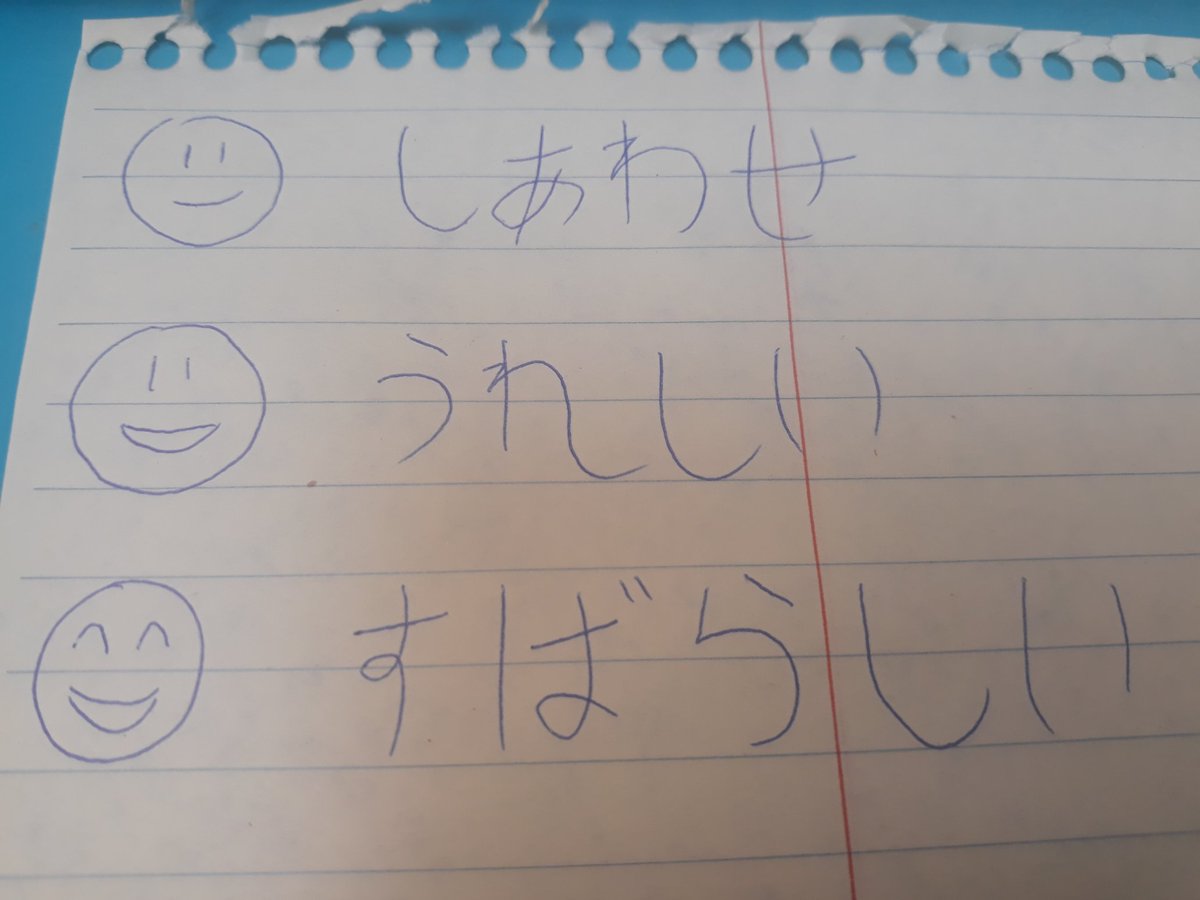 しあわせ
うれしい
すばらしい